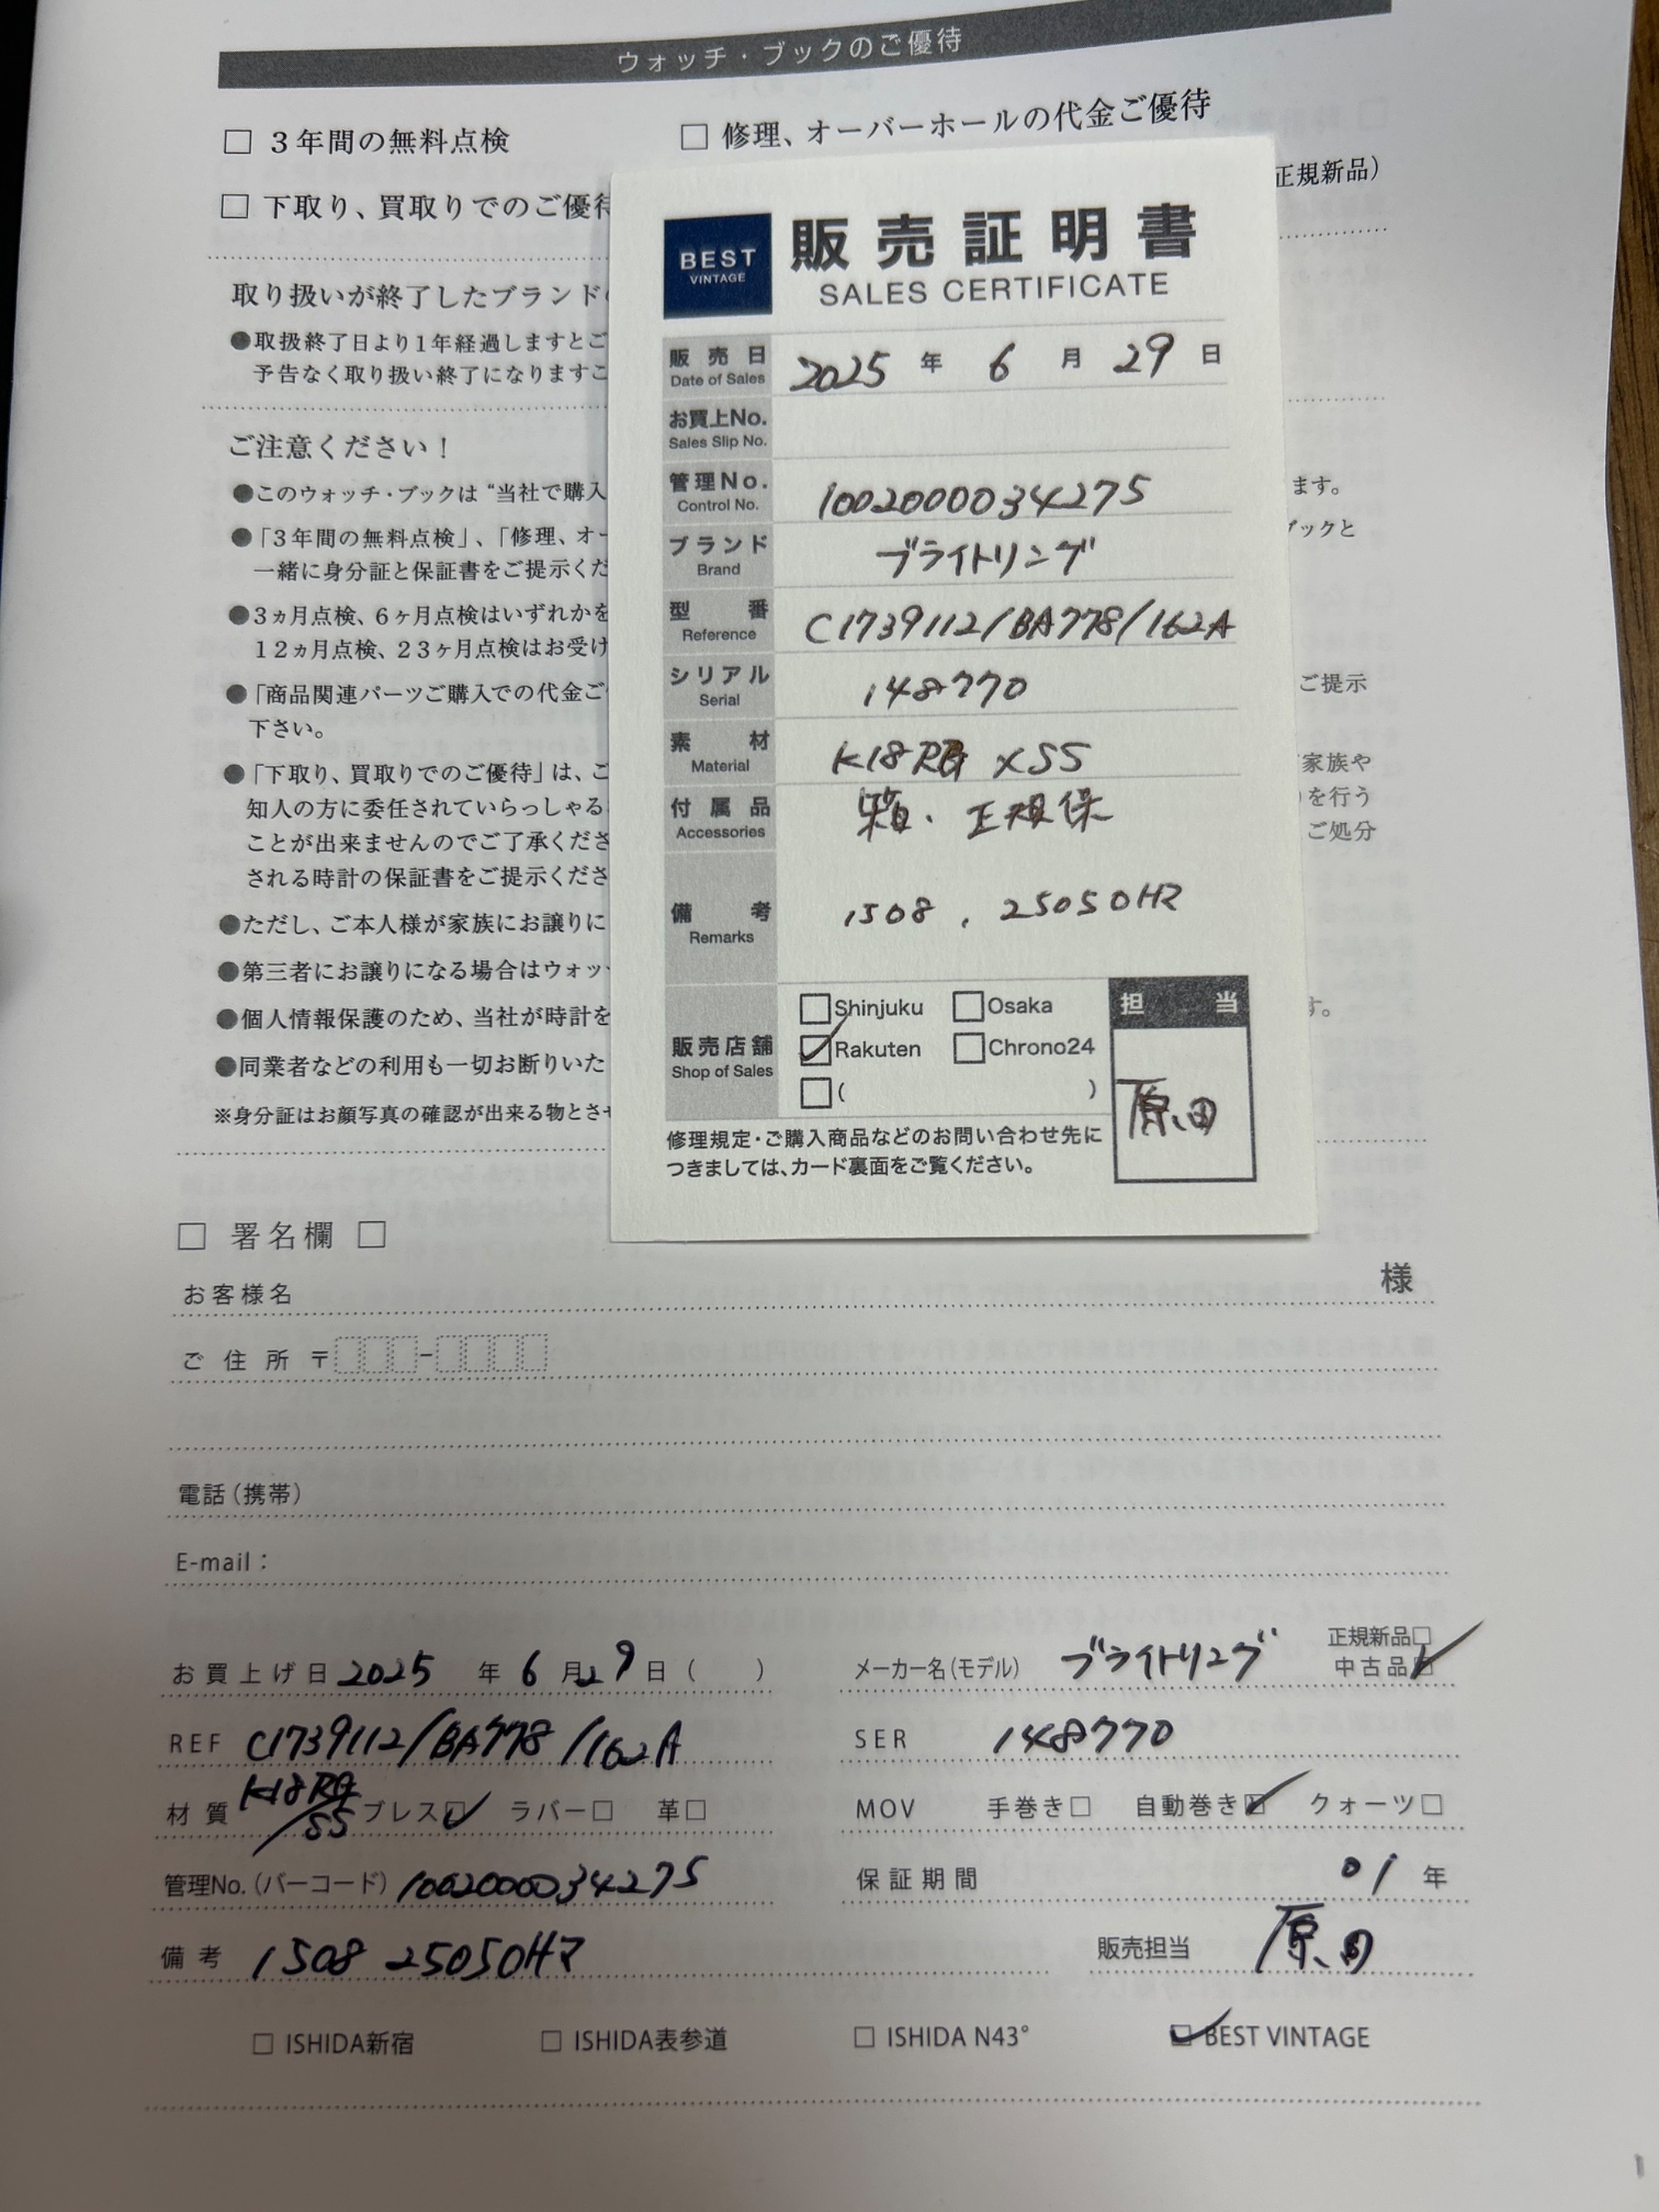 ウォッチ・ブックのご優待
□ 3年間の無料点検
□ 修理、オーバーホールの代金ご優待
正規新品）
□ 下取り、買取りでのご優待
取り扱いが終了したブランド
●取扱終了日より1年経過しますとご
予告なく取り扱い終了になりますこ
ご注意ください！
●このウォッチ・ブックは“当社で購入
ます。
●「3年間の無料点検」、「修理、オー
ブックと
一緒に身分証と保証書をご提示くだ
●3ヵ月点検、6ヶ月点検はいずれかを
12ヵ月点検、23ヶ月点検はお受け
●「商品関連パーツご購入での代金ご
ご提示
下さい。
●「下取り、買取りでのご優待」は、ご
家族や
知人の方に委任されていらっしゃる
を行う
ことが出来ませんのでご了承くださ
ご処分
される時計の保証書をご提示くださ
●ただし、ご本人様が家族にお譲りに
●第三者にお譲りになる場合はウォッ
す。
●個人情報保護のため、当社が時計を
●同業者などの利用も一切お断りいた
※身分証はお顔写真の確認が出来る物とさせ
BEST
VINTAGE
販売証明書
SALES CERTIFICATE
販売日 2025 年 6 月 29 日
Date of Sales
お買上No.
Sales Slip No.
管理No. 1002000034275
Control No.
ブランド ブライトリング
Brand
型番 C1739112/BA778/162A
Reference
シリアル 148770
Serial
素材 K18RG×SS
Material
付属品 箱・正規保
Accessories
備考 1508, 25050HR
Remarks
□Shinjuku □Osaka
販売店舗 ☑Rakuten □Chrono24
Shop of Sales
□( )
担当
原田
修理規定・ご購入商品などのお問い合わせ先に
つきましては、カード裏面をご覧ください。
□ 署名欄 □
お客様名 様
ご住所 〒 -
電話（携帯）
E-mail：
お買上げ日 2025 年 6 月 29 日（ ）
メーカー名（モデル） ブライトリング 正規新品□
中古品☑
REF C1739112/BA778/162A SER 148770
材質 K18RG/SS ブレス☑ ラバー□ 革□ MOV 手巻き□ 自動巻き☑ クォーツ□
管理No.（バーコード） 1002000034275 保証期間 01 年
備考 1508 25050HR 販売担当 原田
□ ISHIDA新宿 □ ISHIDA表参道 □ ISHIDA N43° ☑ BEST VINTAGE
1